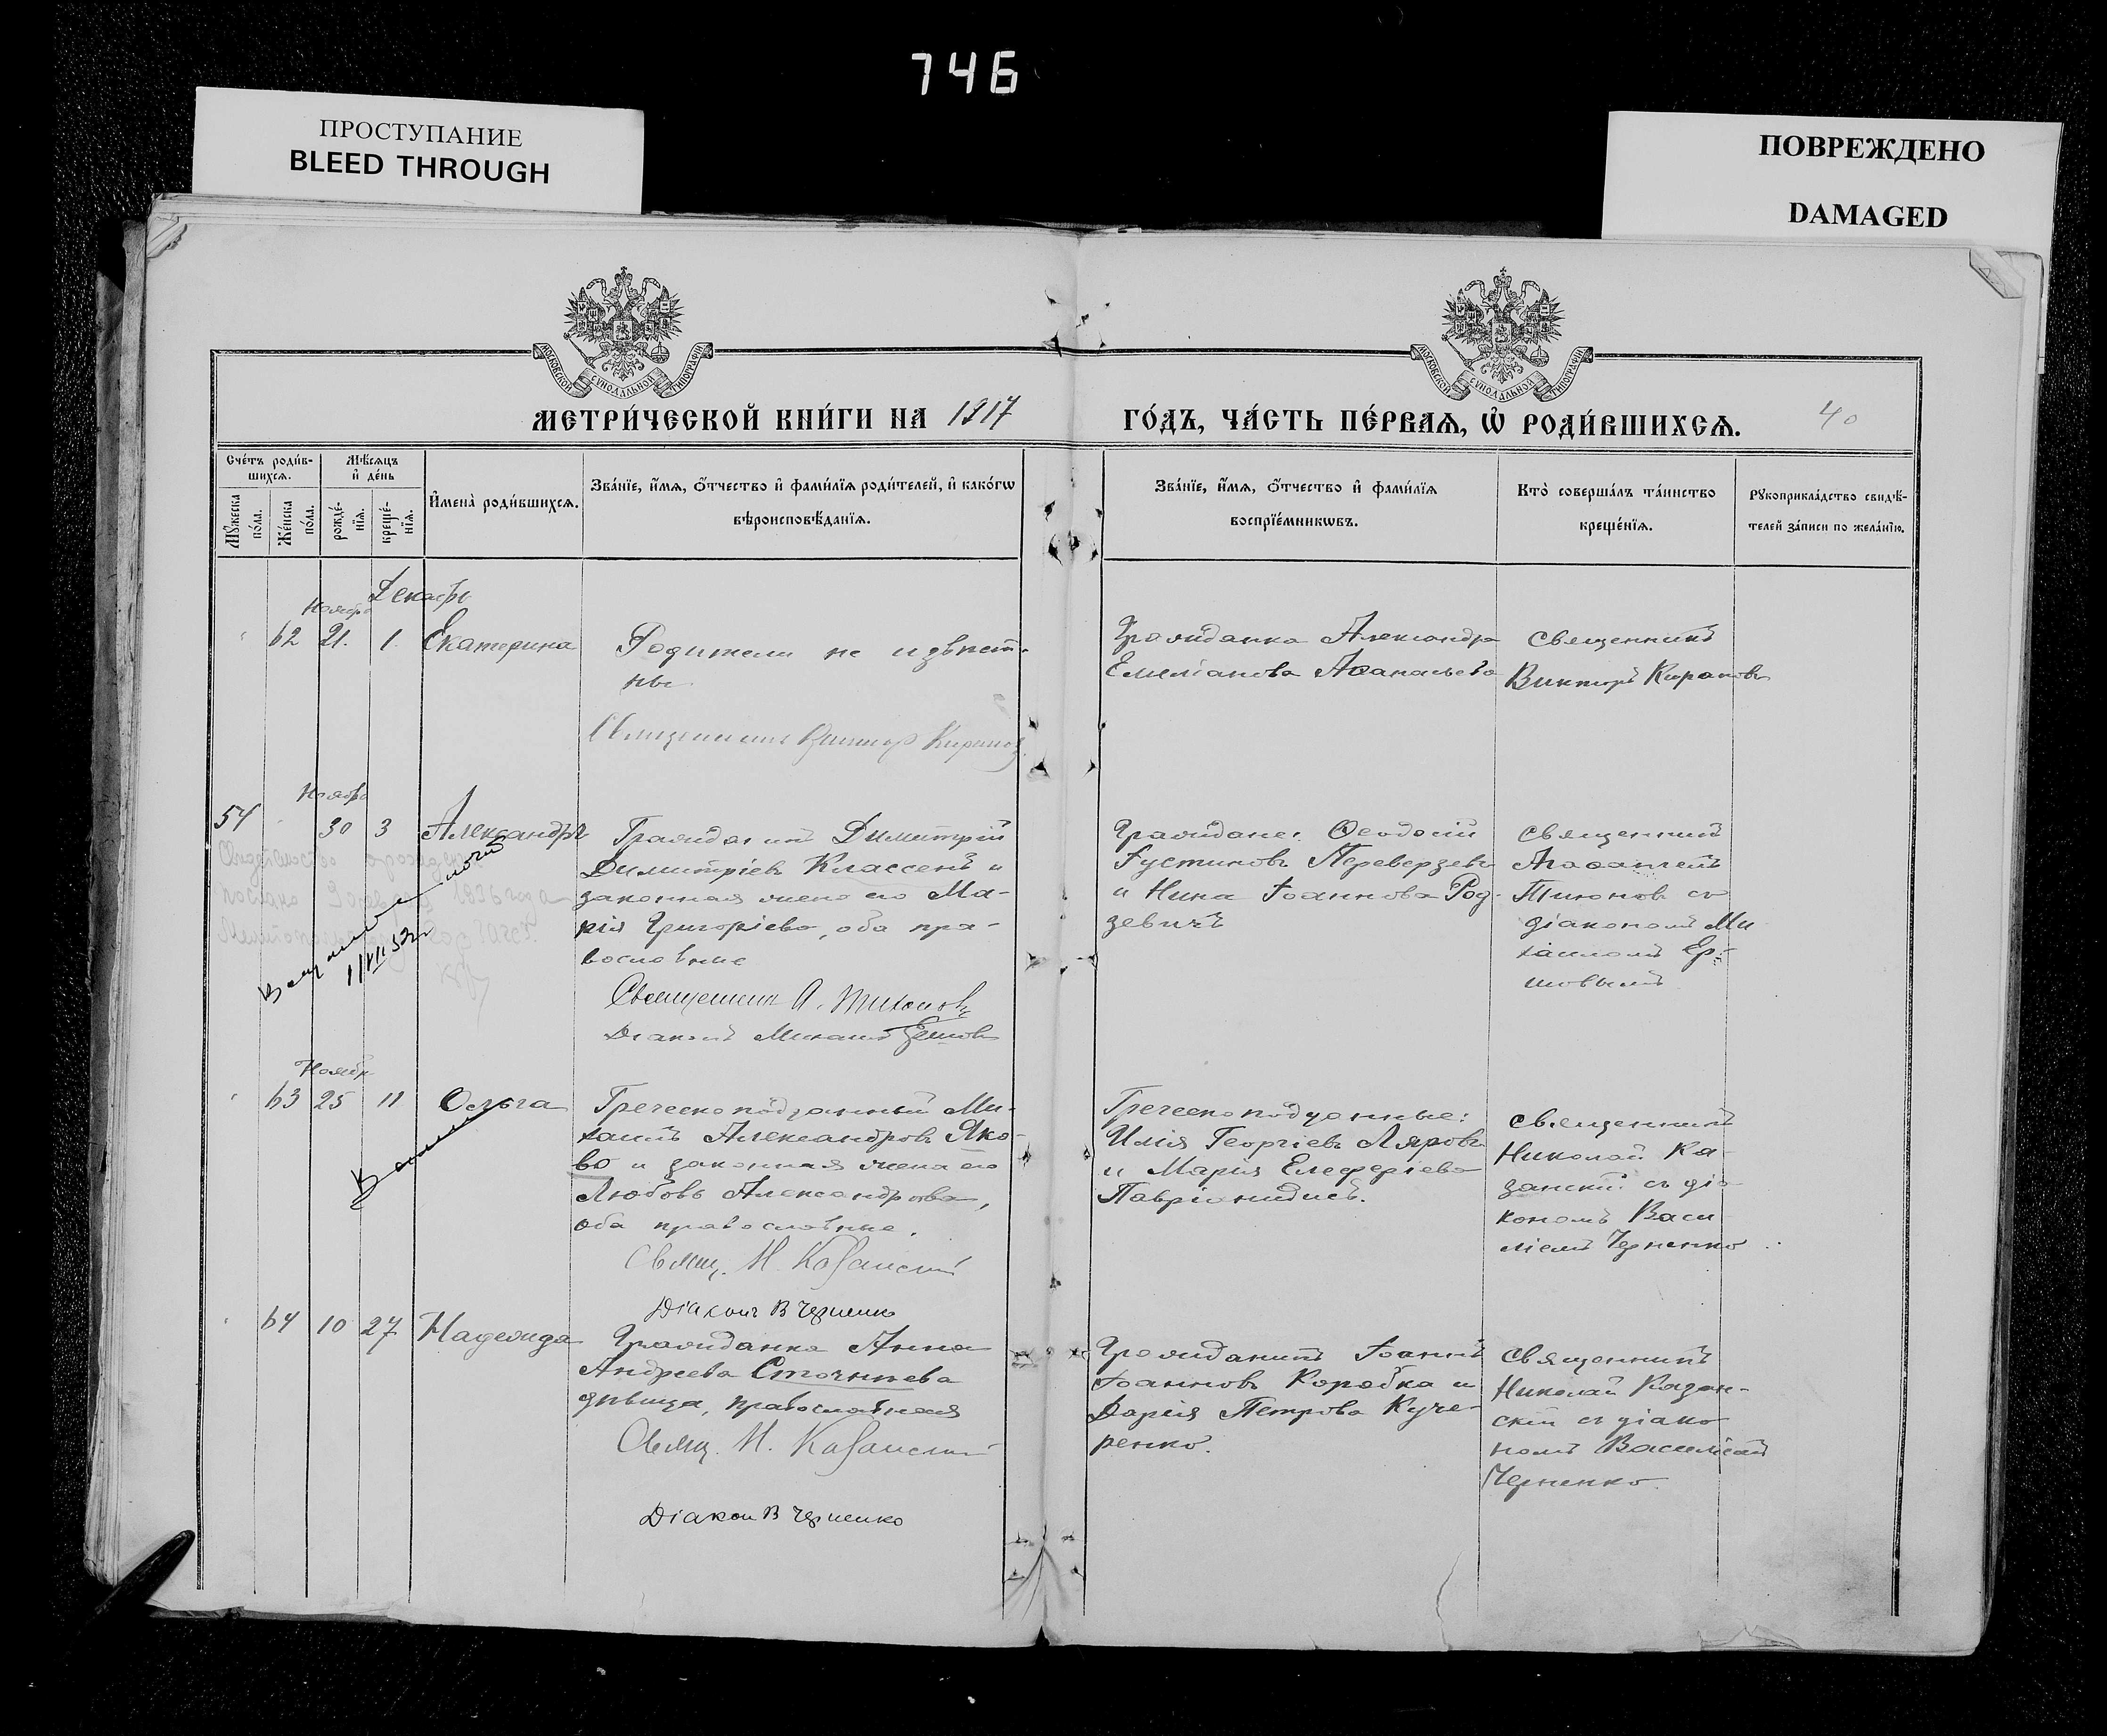 746
ПРОСТУПАНИЕ
BLEED THROUGH
ПОВРЕЖДЕНО
DAMAGED
МОСКОВСКОЙ СѴНОДАЛЬНОЙ ТИПОГРАФІИ
МОСКОВСКОЙ СѴНОДАЛЬНОЙ ТИПОГРАФІИ
МЕТРИ́ЧЕСКОЙ КНИ́ГИ НА 1917
ГО́ДЪ, ЧА́СТЬ ПЕ́РВАѦ, Ѡ҆ РОДИ́ВШИХСѦ.
40
Сче́тъ роди́в-
шихсѧ.
Мѣ́сѧцъ
и҆ де́нь
Мꙋ́жеска
по́ла.
Же́нска
по́ла.
рожде́-
нїѧ.
креще́-
нїѧ.
И҆мена̀ роди́вшихсѧ.
Зва́нїе, и҆́мѧ, ѻ҆́тчество и҆ фами́лїѧ роди́телей, и҆ како́гѡ
вѣроисповѣ́данїѧ.
Зва́нїе, и҆́мѧ, ѻ҆́тчество и҆ фами́лїѧ
воспрїе́мникѡвъ.
Кто̀ соверша́лъ та́инство
креще́нїѧ.
Рꙋкоприкла́дство свидѣ́-
телей за́писи по жела́нїю.
Декабрь
Ноября
62 21. 1. Екатерина
Родители не извѣст-
ны.
Священникъ Виктор Кирановъ
Гражданка Александра
Емеліанова Аѳанасьева
Священникъ
Викторъ Кирановъ
Ноября
54 30 3 Александръ
Гражданинъ Димитрій
Димитріевъ Классенъ и
законная жена его Ма-
рія Григоріева, оба пра-
вославные
Священникъ А. Тихоновъ
Діаконъ Михаилъ Ершовъ
1/VII 52г.
Граждане: Ѳеодосій
Іустиновъ Переверзевъ
и Нина Іоаннова Род-
зевичъ
Священникъ
Агаѳангелъ
Тихонов съ
діакономъ Ми
хаиломъ Ер-
шовымъ
Ноябр.
63 25 11 Ольга
Греческоподданный Ми-
хаилъ Александровъ Яко-
во и законная жена его
Любовь Александрова,
оба православные.
Свящ. Н. Казанскій
Діаконъ В Черненко
Греческоподданные:
Илія Георгіевъ Ляровъ
и Марія Елеферіева
Павріанидисъ.
Священникъ
Николай Ка-
занскій съ діа
кономъ Васи
ліемъ Черненко
64 10 27 Надежда
Гражданка Анна
Андреева Сточнѣева
дѣвица, православная
Свящ. Н. Казанскій
Діакон В Черненко
Гражданинъ Іоаннъ
Іоанновъ Коробка и
Дарія Петрова Куче-
ренко.
Священникъ
Николай Казан-
скій съ діако
номъ Василіемъ
Черненко.